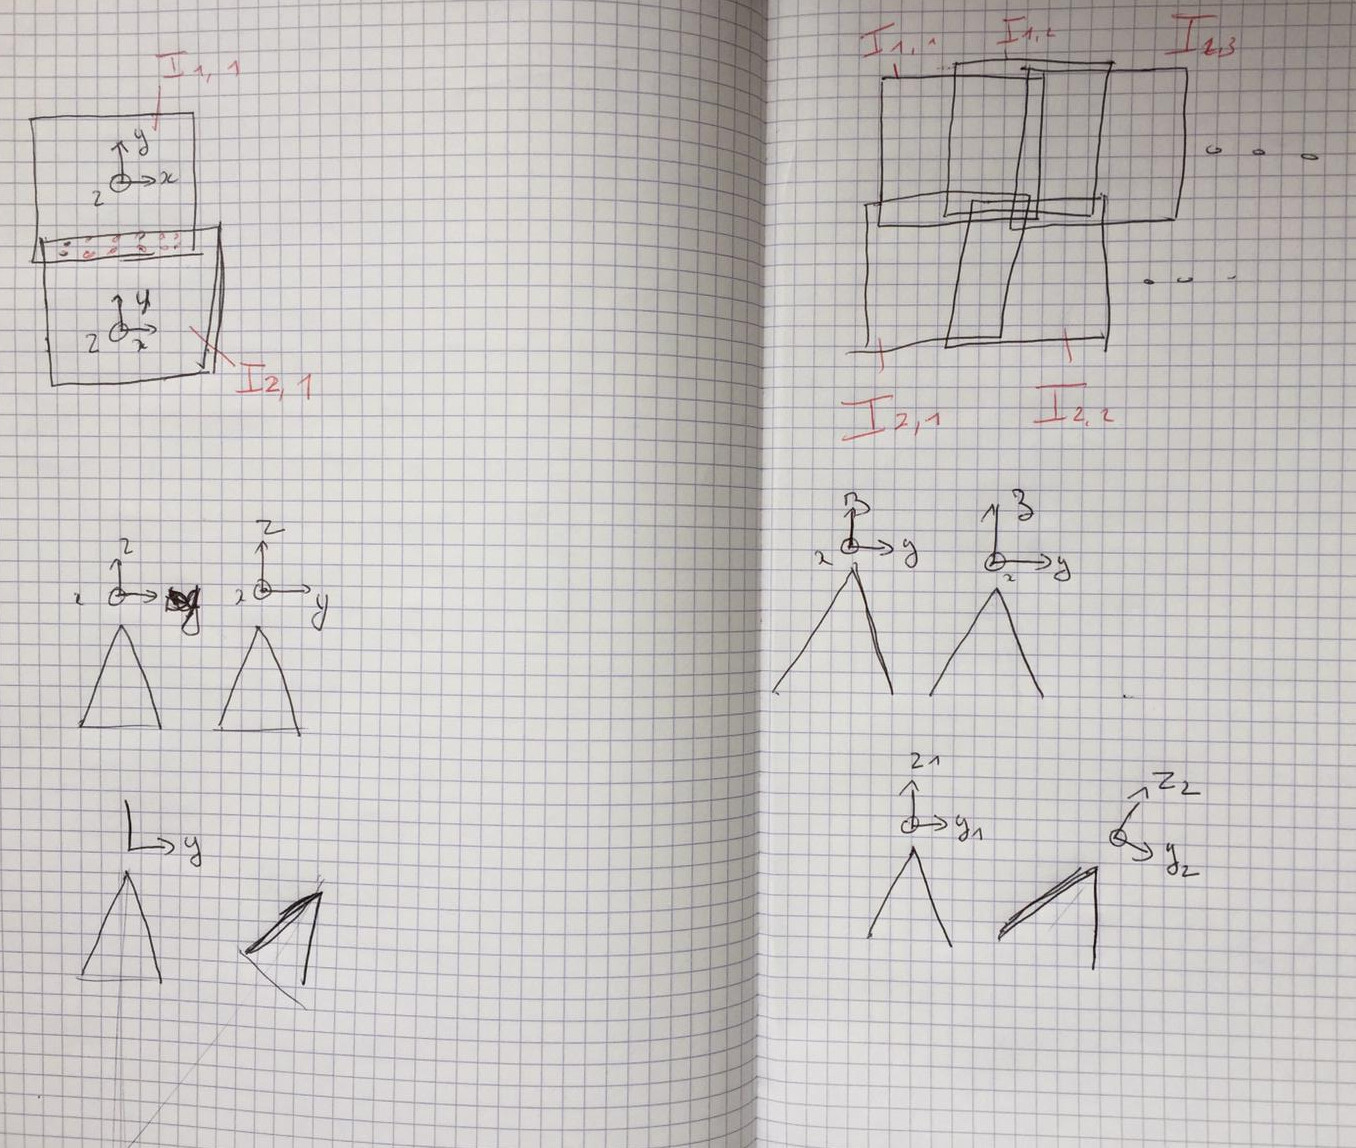 I1,1
y
x
z
y
z
x
I2,1
z
z
x
y
x
y
y
I1,1
I1,2
I2,3
I2,1
I2,2
z
z
x
y
x
y
z1
y1
z2
y2